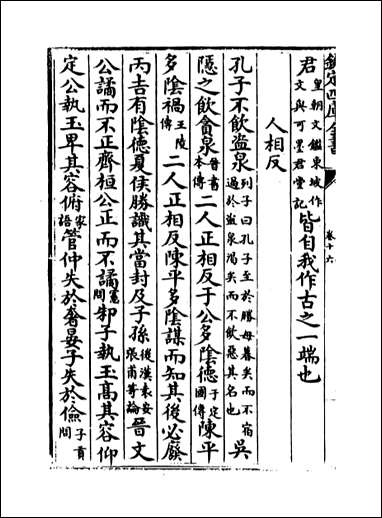 欽定四庫全書 卷十六
君皇朝文鑑東坡作文與可墨君堂記皆自我作古之一端也
人相反
孔子不飲盜泉列子曰孔子至於勝母暮矣而不宿過於盜泉渴矣而不飲惡其名也吳
隱之飲貪泉晉書本傳二人正相反于公多陰德于定國傳陳平
多陰禍王陵傳二人正相反陳平多陰謀而知其後必廢
丙吉有陰德夏侯勝識其當封及子孫後漢袁安張甫等論晉文
公譎而不正齊桓公正而不譎憲問邾子執玉髙其容仰
定公執玉卑其容俯家語管仲失於奢晏子失於儉子貢問